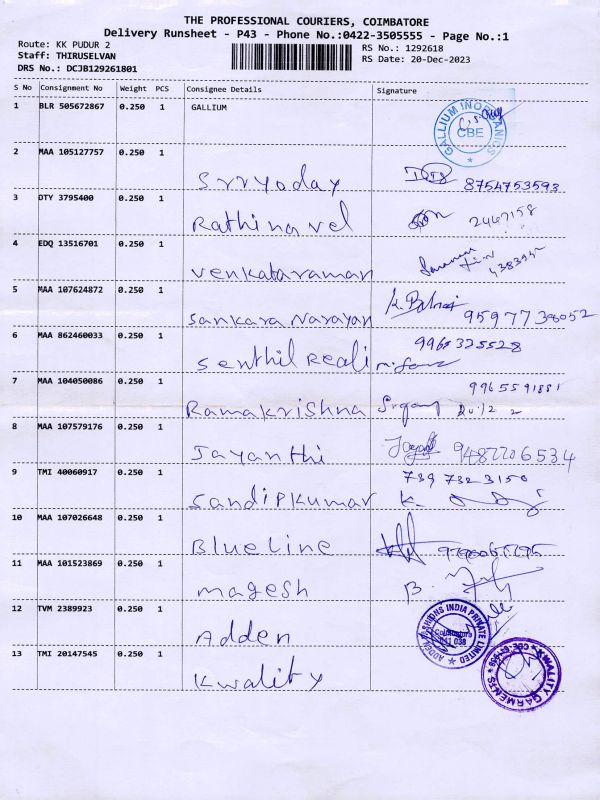 THE PROFESSIONAL COURIERS, COIMBATORE
Delivery Runsheet - P43 - Phone No.:0422-3505555 - Page No.:1
Route: KK PUDUR 2
RS No.: 1292618
Staff: THIRUSELVAN
RS Date: 20-Dec-2023
DRS No.: DCJB129261801
S No Consignment No Weight PCS Consignee Details Signature
1 BLR 505672867 0.250 1 GALLIUM
GALLIUM INORGANICS
CBE
2 MAA 105127757 0.250 1
Srryoday 8754753593
3 DTY 3795400 0.250 1
Rathinavel 2447158
4 EDQ 13516701 0.250 1
Venkataraman
5 MAA 107624872 0.250 1
Sankara Narayan 9597738052
6 MAA 862460033 0.250 1
Senthil Reali
7 MAA 104050086 0.250 1
Ramakrishna
8 MAA 107579176 0.250 1
Jayanthi 9487706534
9 TMI 40060917 0.250 1 739 732 3150
Sandipkumar K.
10 MAA 107026648 0.250 1
Blueline
11 MAA 101523869 0.250 1
Magesh B.
12 TVM 2389923 0.250 1
Adden
INDIA PRIVATE LIMITED
Coimbatore
641 038
13 TMI 20147545 0.250 1
Kwality
KWALITY GARMENTS